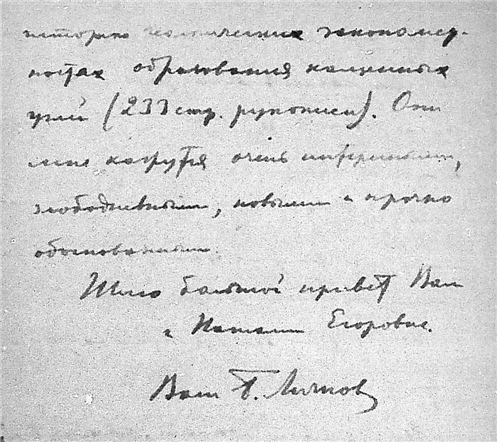 историко геологических закономер-
ностях образования каменных
углей (233 стр. рукописи). Они
мне кажутся очень интересными,
злободневными, новыми и прочно
обоснованными.
Шлю большой привет Вам
и Наталии Егоровне.
Ваш Б. Личков